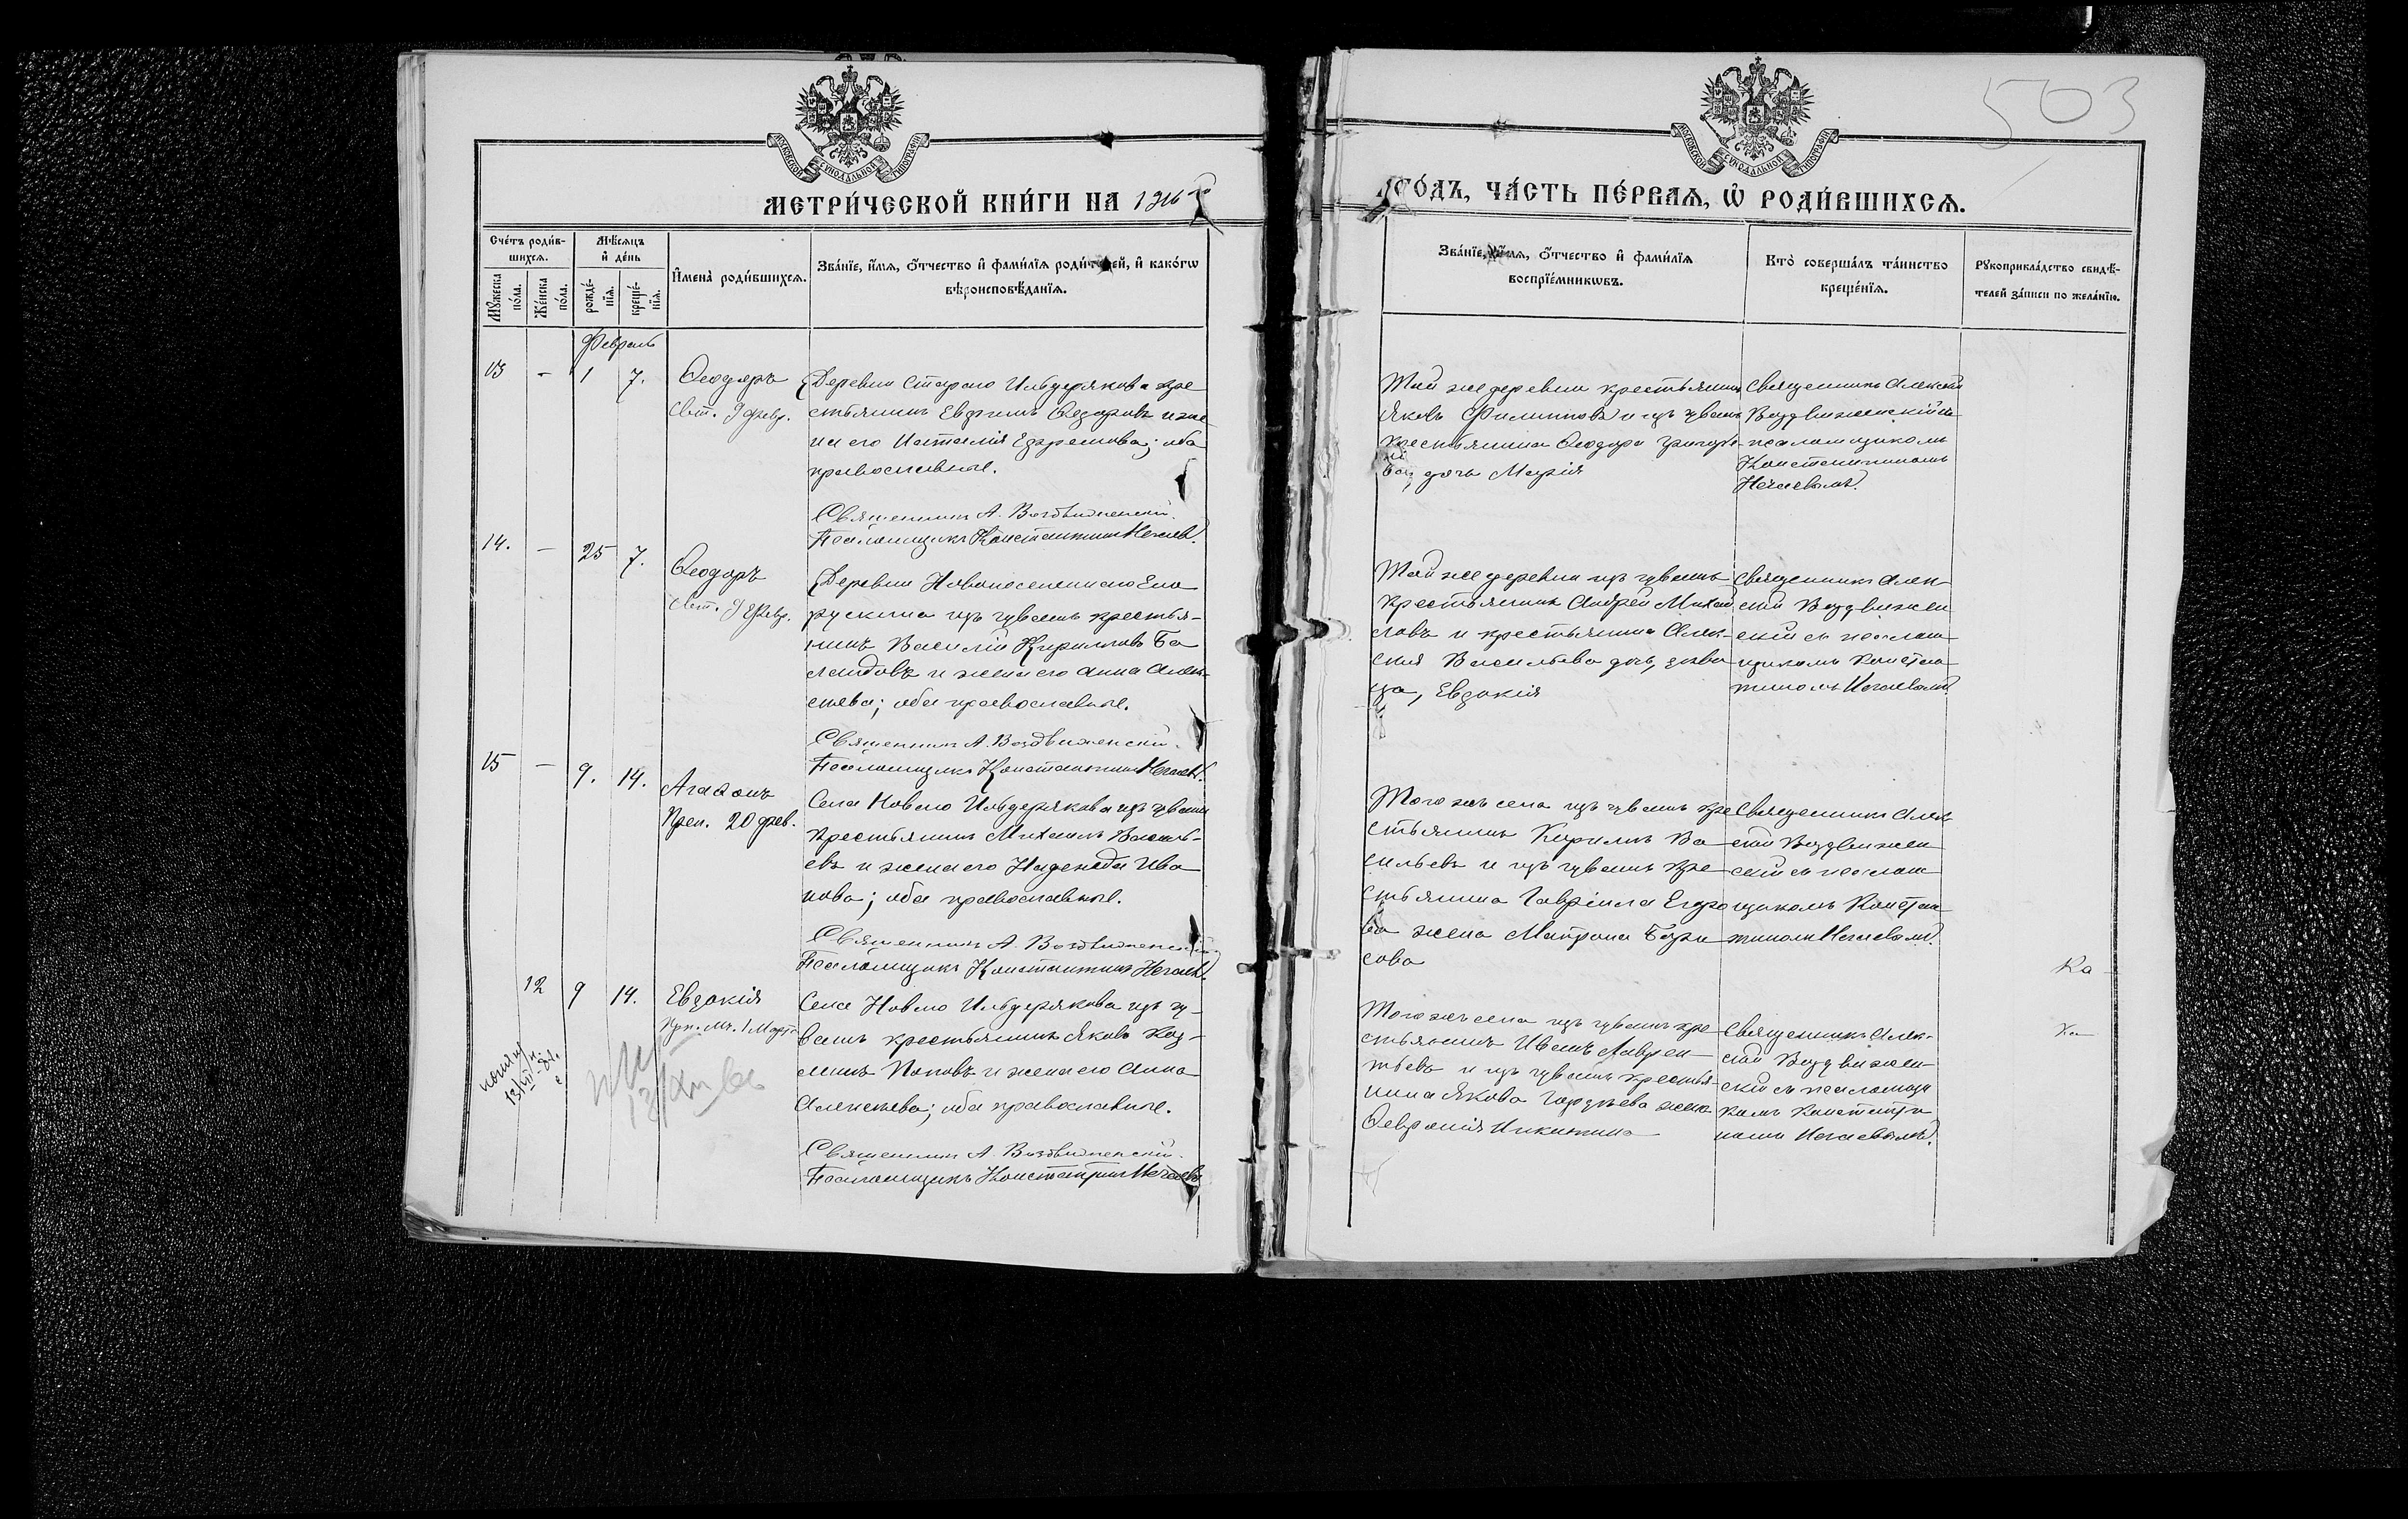 503
МОСКОВСКОЙ СѴНОДАЛЬНОЙ ТИПОГРАФІИ
МОСКОВСКОЙ СѴНОДАЛЬНОЙ ТИПОГРАФІИ
МЕТРИ́ЧЕСКОЙ КНИ́ГИ НА 1916
ГО́ДЪ, ЧА́СТЬ ПЕ́РВАѦ, Ѡ҆ РОДИ́ВШИХСѦ.
Сче́тъ роди́в-
шихсѧ.
Мꙋ́жеска
по́ла.
Же́нска
по́ла.
Мѣ́сѧцъ
и҆ де́нь
рожде́-
нїѧ.
креще́-
нїѧ.
И҆мена̀ роди́вшихсѧ.
Зва́нїе, и҆́мѧ, ѻ҆́тчество и҆ фами́лїѧ роди́телей, и҆ како́гѡ
вѣроисповѣ́данїѧ.
Зва́нїе, и҆́мѧ, ѻ҆́тчество и҆ фами́лїѧ
воспрїе́мникѡвъ.
Кто̀ соверша́лъ та́инство
креще́нїѧ.
Рꙋкоприкла́дство свидѣ́-
телей за́писи по жела́нїю.
Февраль
13 - 1 7.
Ѳеодоръ
Свт. 9 февр.
Деревни Стараго Ильдерякова кре
стьянинъ Евдокимъ Ѳедоровъ и же
на его Наталія Ефремова; оба
православные.
Священникъ А. Воздвиженскій.
Псаломщикъ Константинъ Нечаевъ.
Той же деревни крестьянинъ
Яковъ Филипповъ и изъ чувашъ
крестьянина Ѳеодора Григорь-
ева, дочь Марія
Священникъ Алексѣй
Воздвиженскій съ
псаломщикомъ
Константиномъ
Нечаевымъ.
14. - 25 7.
Ѳеодоръ
Свт. 9 Февр.
Деревни Новопоселеннаго
изъ чувашъ крестья-
нинъ Василій Кирилловъ Ба
ландовъ и жена его Анна Алек-
сѣева; оба православные.
Священникъ А. Воздвиженскій.
Псаломщикъ Константинъ Нечаевъ.
Той же деревни изъ чувашъ
крестьянинъ Андрей Михай
ловъ и крестьянина Алек-
сѣя Васильева дочь,
Евдокія
Священникъ Алек-
сѣй Воздвижен
скій съ псалом
щикомъ Констан
тиномъ Нечаевымъ.
15 - 9. 14.
Агаѳонъ
Преп. 20 фев.
Села Новаго Ильдерякова изъ чувашъ
крестьянинъ Михаилъ Василь-
евъ и жена его Надежда Ива
нова; оба православные.
Священникъ А. Воздвиженскій.
Псаломщикъ Константинъ Нечаевъ.
Того жъ села изъ чувашъ кре
стьянинъ Кириллъ Ва
сильевъ и изъ чувашъ кре
стьянина Гавріила Егоро
ва жена Матрона Бори
сова
Священникъ Алек
сѣй Воздвижен
скій съ псалом
щикомъ Констан
тиномъ Нечаевымъ.
12 9 14.
Евдокія
Прп. мч. 1 Марта
Села Новаго Ильдерякова изъ чу-
вашъ крестьянинъ Яковъ Коз-
минъ Поповъ и жена его Анна
Алексѣева; оба православные.
Священникъ А. Воздвиженскій.
Псаломщикъ Константинъ Нечаевъ
Того жъ села изъ чувашъ кре
стьянинъ Иванъ Лаврен
тьевъ и изъ чувашъ крестья-
нина Якова Гордѣева жена
Ѳевронія Никитина
Священникъ Алек-
сѣй Воздвижен-
скій съ псаломщи
комъ Константи
номъ Нечаевымъ.